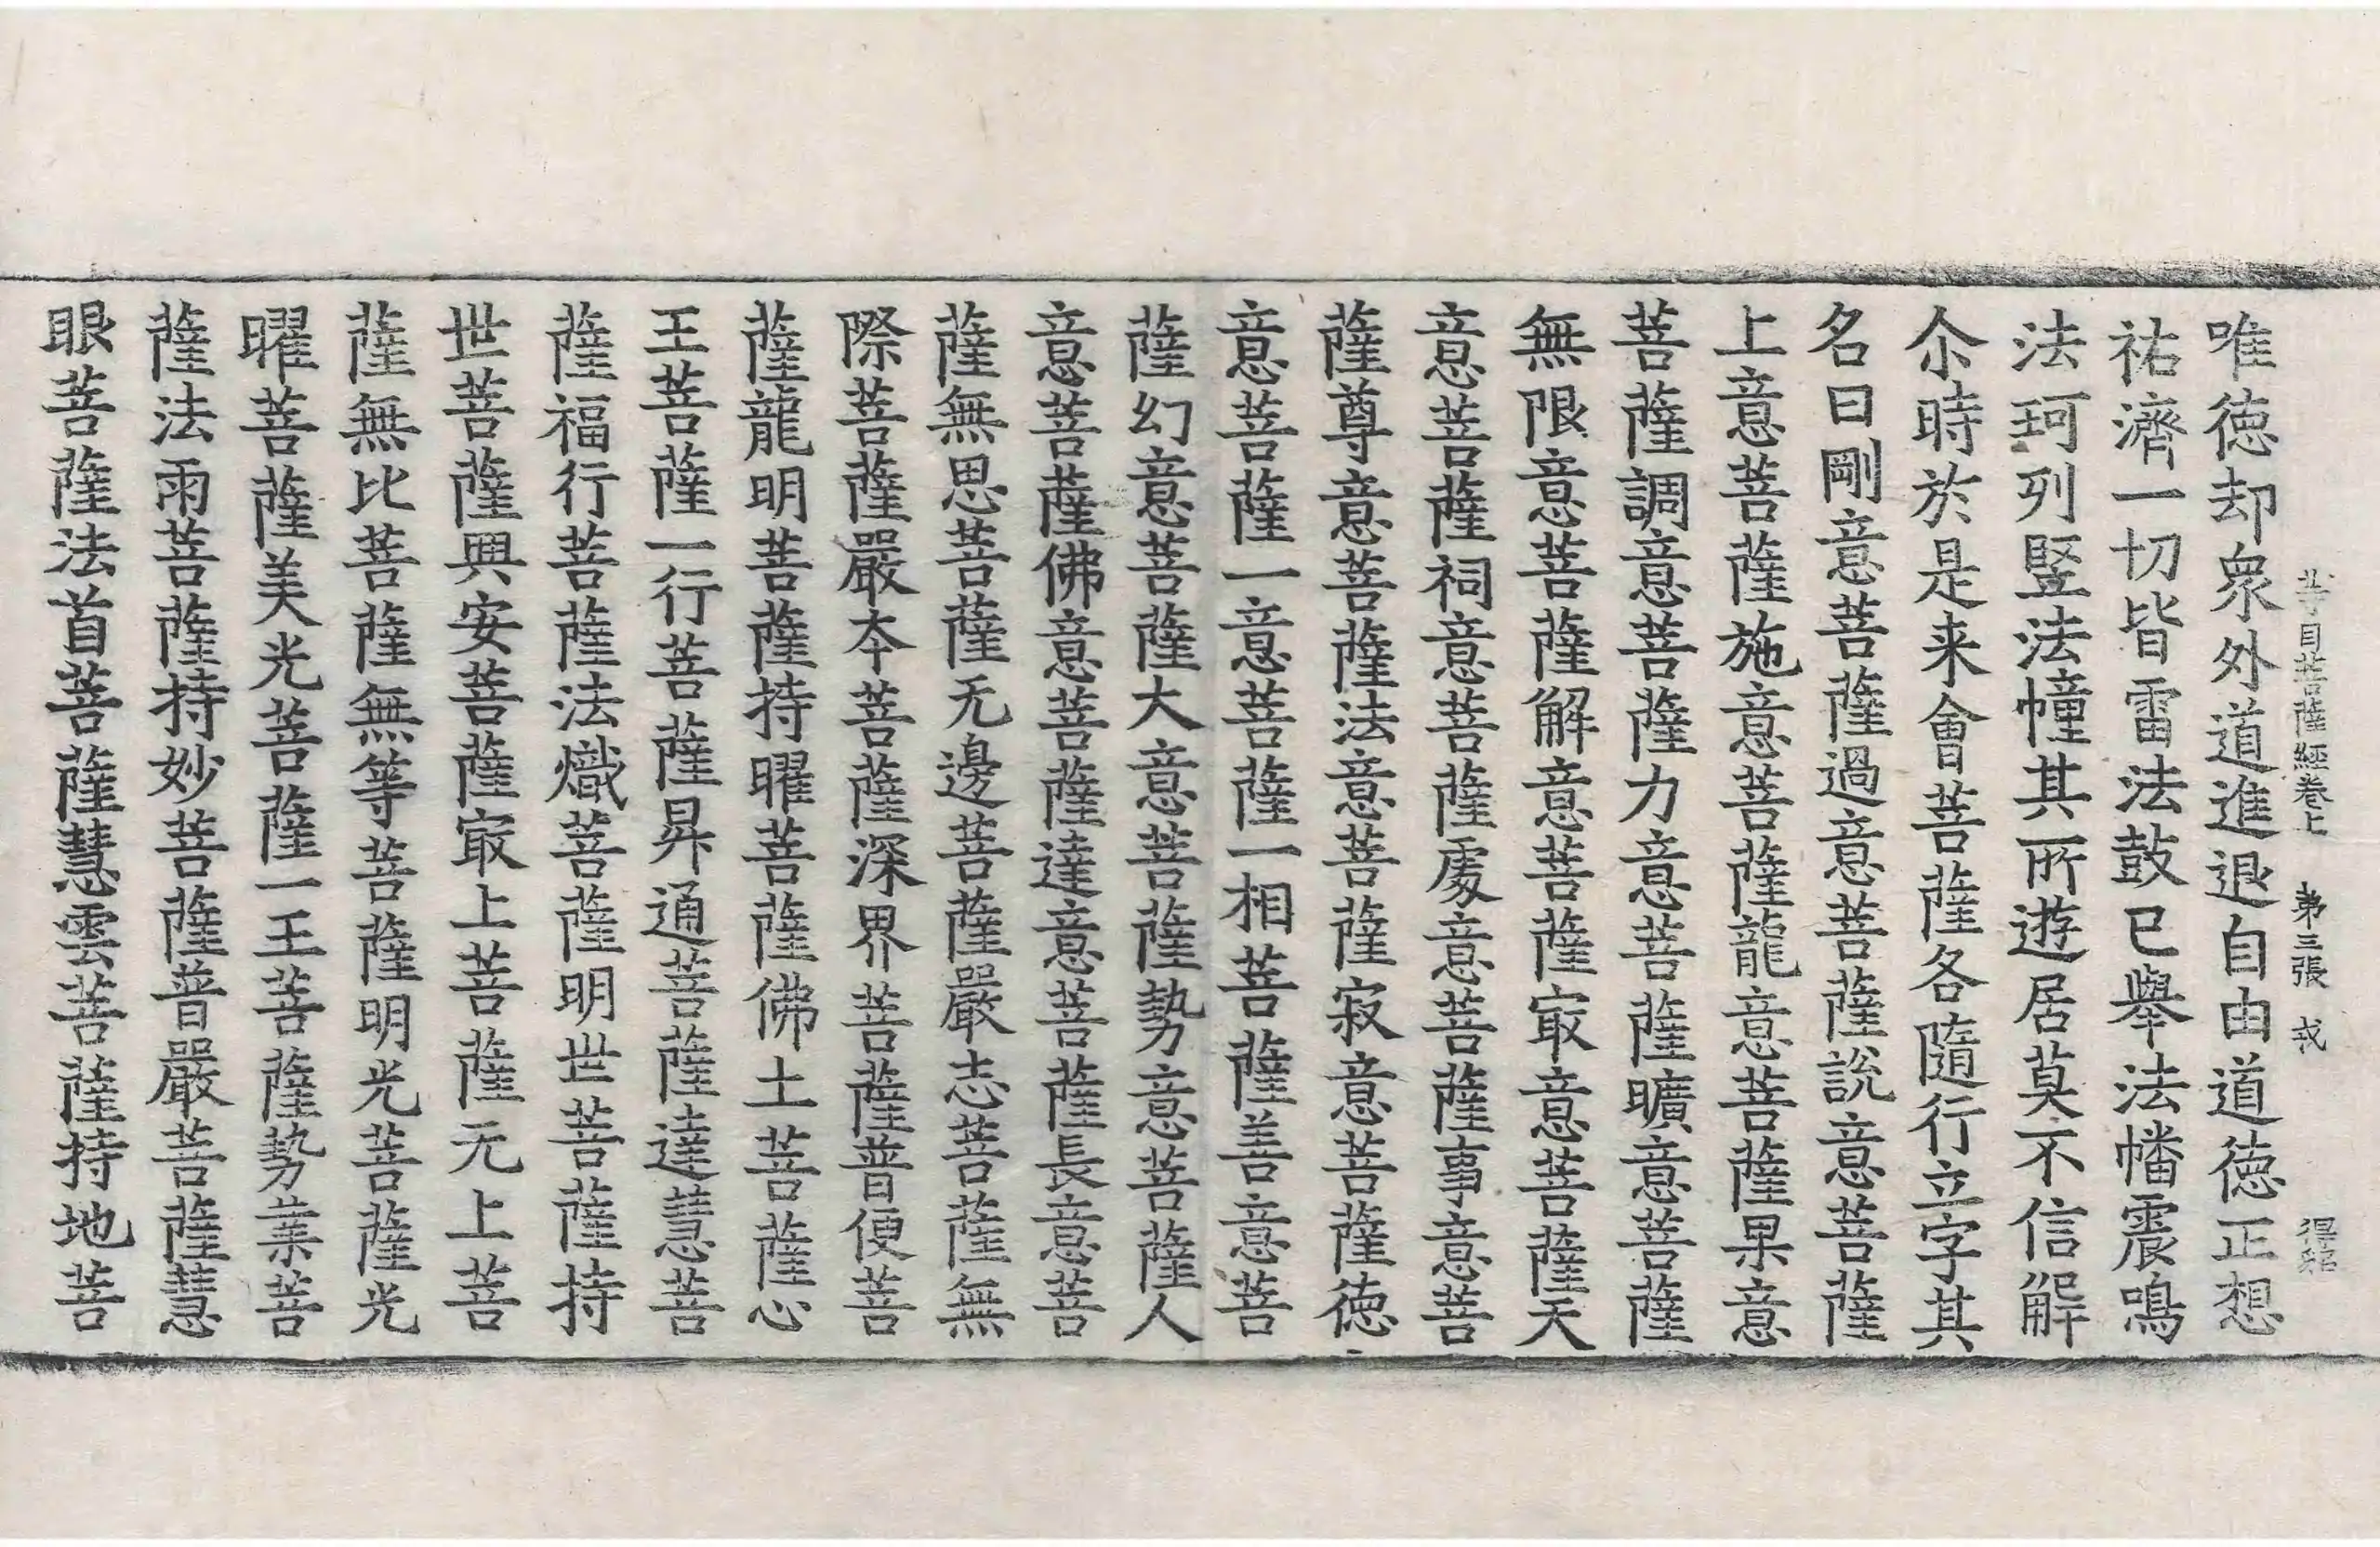 等目菩薩經卷上 弟三張 戎
唯徳却衆外道進退自由道徳正想
祐濟一切皆雷法鼓已舉法幡震鳴
法珂列竪法幢其所遊居莫不信解
尒時於是来會菩薩各隨行立字其
名曰剛意菩薩過意菩薩說意菩薩
上意菩薩施意菩薩龍意菩薩果意
菩薩調意菩薩力意菩薩曠意菩薩
無限意菩薩解意菩薩㝡意菩薩天
意菩薩祠意菩薩處意菩薩事意菩
薩尊意菩薩法意菩薩寂意菩薩徳
意菩薩一意菩薩一相菩薩善意菩
薩幻意菩薩大意菩薩勢意菩薩人
意菩薩佛意菩薩達意菩薩長意菩
薩無思菩薩无邊菩薩嚴志菩薩無
際菩薩嚴夲菩薩深界菩薩普便菩
薩龍明菩薩持曜菩薩佛土菩薩心
王菩薩一行菩薩昇通菩薩達慧菩
薩福行菩薩法熾菩薩明世菩薩持
世菩薩興安菩薩㝡上菩薩元上菩
薩無比菩薩無等菩薩明光菩薩光
曜菩薩美光菩薩一王菩薩勢業菩
薩法雨菩薩持妙菩薩普嚴菩薩慧
眼菩薩法首菩薩慧雲菩薩持地菩